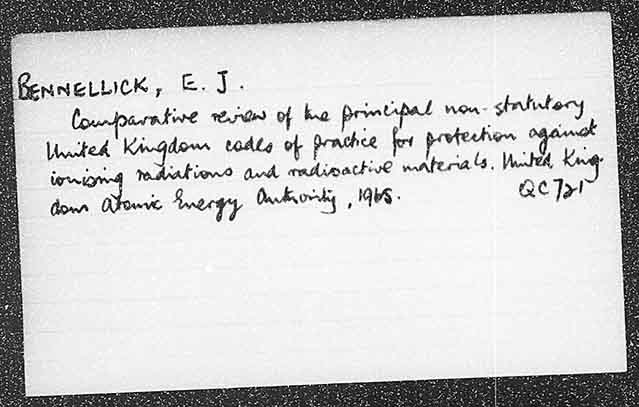 BENNELLICK, E. J.
Comparative review of the principal non-statutory
United Kingdom codes of practice for protection against
ionising radiations and radioactive materials. United King-
dom Atomic Energy Authority, 1965.
QC721